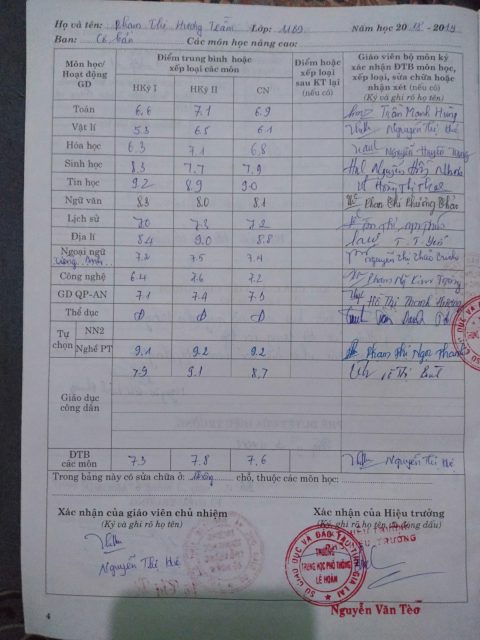 Họ và tên: Phạm Thị Hương Trầm Lớp: 11B9 Năm học 2018 - 2019
Ban: Cơ bản Các môn học nâng cao:
Môn học/ Hoạt động GD | Điểm trung bình hoặc xếp loại các môn | Điểm hoặc xếp loại sau KT lại (nếu có) | Giáo viên bộ môn ký xác nhận ĐTB môn học, xếp loại, sửa chữa hoặc nhận xét (nếu có) (Ký và ghi rõ họ tên)
HKỳ I HKỳ II CN
Toán 6.6 7.1 6.9 Trần Mạnh Hùng
Vật lí 5.3 6.5 6.1 Nguyễn Thị Huệ
Hóa học 6.3 7.1 6.8 Nguyễn Huyền
Sinh học 8.3 7.7 7.9 Nguyễn
Tin học 9.2 8.9 9.0 Hồng Thị
Ngữ văn 8.3 8.0 8.1 Phan Thị Phương Thảo
Lịch sử 7.0 7.3 7.2
Địa lí 8.4 9.0 8.8 T. T. Yến
Ngoại ngữ Tiếng Anh 7.2 7.5 7.4 Nguyễn Thị Thảo
Công nghệ 6.4 7.6 7.2 Phạm
GD QP-AN 7.1 7.4 7.3 Hồ Thị Thanh Hương
Thể dục Đ Đ Đ
Tự chọn NN2
Nghề PT 9.1 9.2 9.2 Phạm Thị Ngọc Thanh
Giáo dục công dân 7.9 9.1 8.7
ĐTB các môn 7.3 7.8 7.6 Nguyễn Thị Huệ
Trong bảng này có sửa chữa ở: không chỗ, thuộc các môn học:
Xác nhận của giáo viên chủ nhiệm Xác nhận của Hiệu trưởng
(Ký và ghi rõ họ tên) (Ký, ghi rõ họ tên và đóng dấu)
HIỆU TRƯỞNG
SỞ GIÁO DỤC VÀ ĐÀO TẠO TỈNH GIA LAI
TRƯỜNG
TRUNG HỌC PHỔ THÔNG
LÊ HOÀN
Nguyễn Thị Huệ
Nguyễn Văn Tèo
4